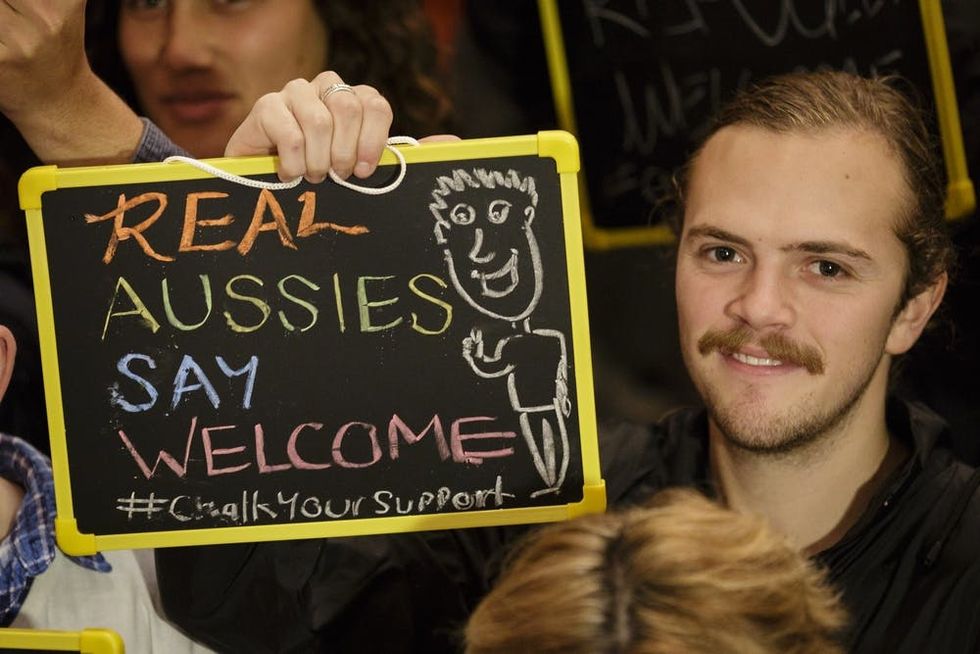 REAL
AUSSIES
SAY
WELCOME
#ChalkYourSupport
WELCOME